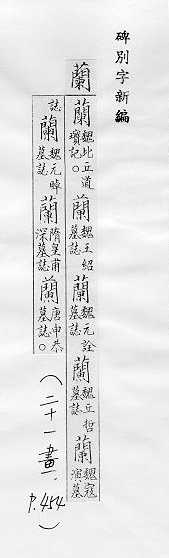 碑別字新編
蘭
蘭 魏比丘道瓊記。 蘭 魏王紹墓誌 蘭 魏元詮墓誌 蘭 魏丘哲墓誌 蘭 魏寇演墓
誌 蘭 魏元晫墓誌 蘭 隋皇甫深墓誌 蘭 唐申恭墓誌。
(二十一畫. P.454)